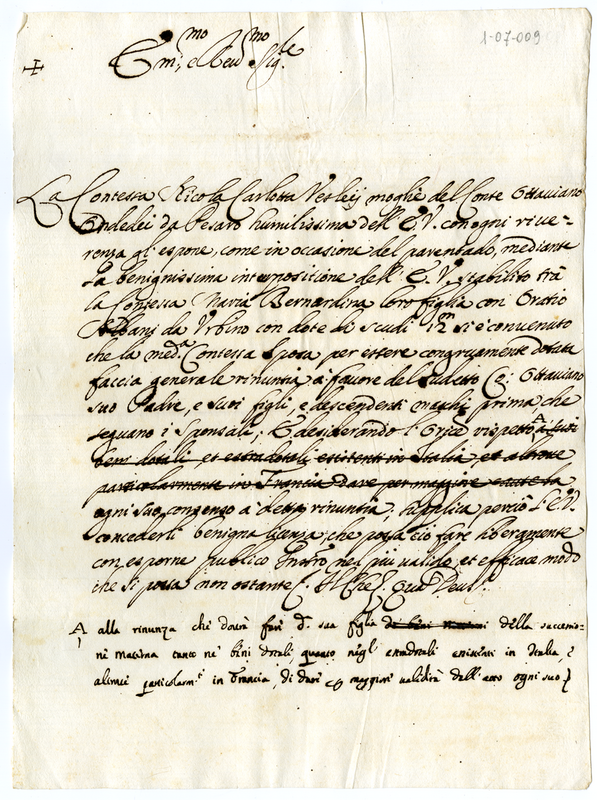 1-07-009
Em:mo e Reu:mo Sig.re
La Contessa Nicola Carlotta Vesleij moglie del Conte Ottauiano
Ondedei da Pesaro humilissima dell' E.V. con ogni riue-
renza gl'espone, come in occasione del parentado, mediante
la benignissima interpositione dell' E. V. stabilito trà
la Contessa Maria Bernardina loro figlia con Oratio
Albani da Vrbino con dote di scudi 12m si è conuenuto
che la med.a Contessa Sposa, per essere congruamente dotata
faccia generale rinuntia à fauore del sudetto Co: Ottauiano
suo Padre, e suoi figli, e descendenti maschi prima che
seguano i Sponsali; E desiderando l'Orice rispetto A à suoi
beni dotali, et estradotali esistenti in Italia, et altroue
particolarmente in Francia dare per maggiore cautela
ogni suo consenso à detta rinuntia, supplica perciò l'E.V.
concederli benigna licenza, che possa ciò fare liberamente
con esporne publico Instro nel più ualido, et efficace modo
che si possa non ostante &. Il che &. Qua Deus &.
A alla rinunza che dourà fare d. sua figlia della successio-
ne materna tanto ne' beni dotali, quanto negl' extradotali esistenti in Italia, e
altroue particolarm.te in Francia, di dare maggiore ualidità dell' atto ogni suo